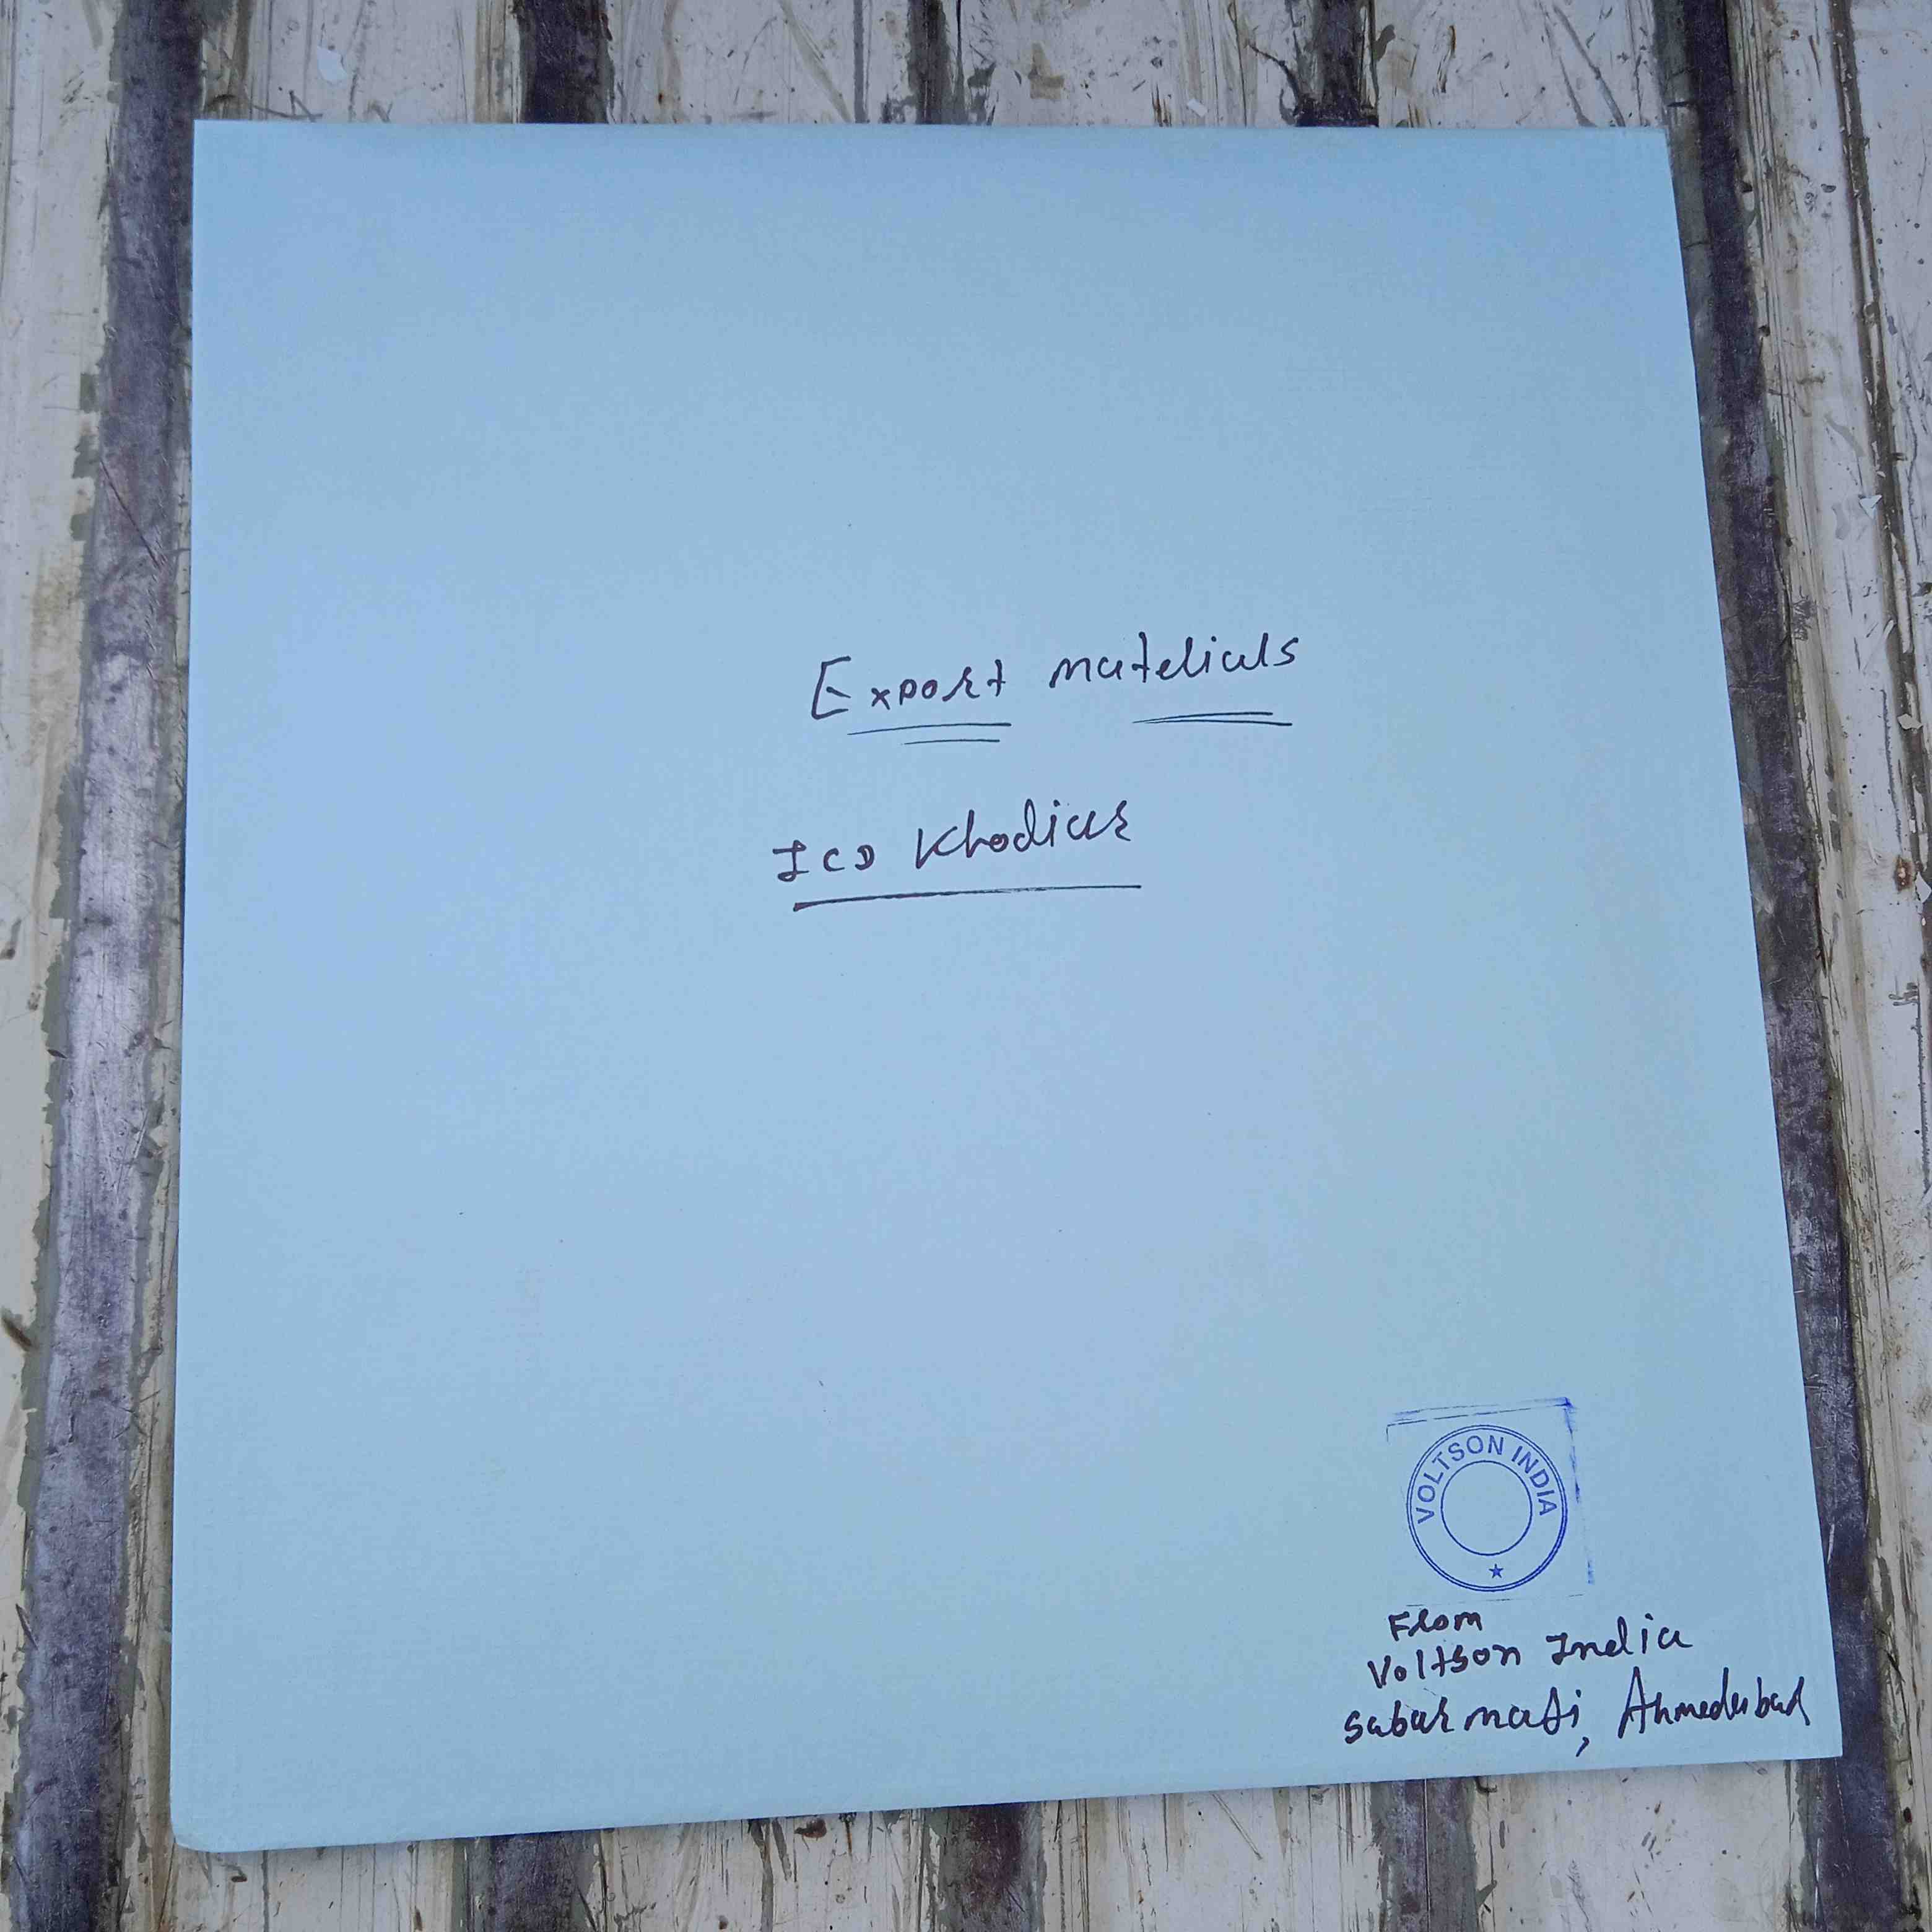 Export materials
ICD Khodiar
VOLTSON INDIA
From
Voltson India
Sabarmati, Ahmedabad